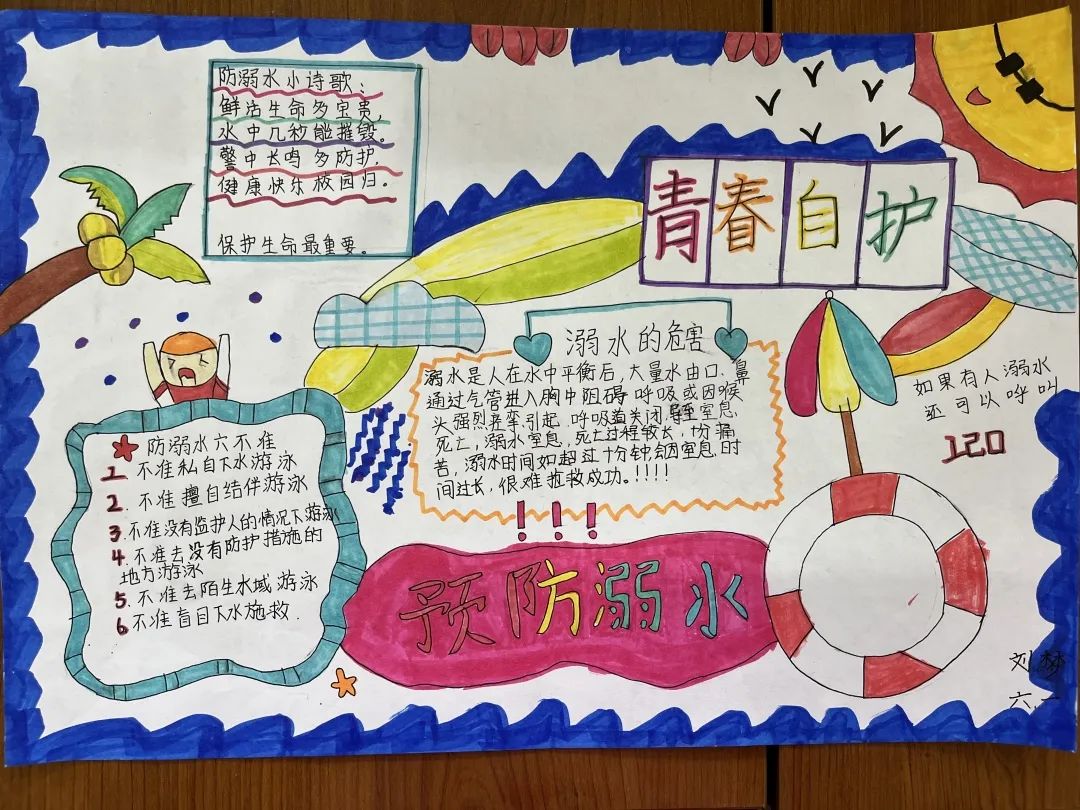 防溺水小诗歌:
鲜活生命多宝贵,
水中几秒能摧毁。
警中长鸣多防护,
健康快乐校园归。
保护生命最重要。
青春自护
溺水的危害
溺水是人在水中平衡后,大量水由口、鼻
通过气管进入胸中阻碍呼吸或因喉
头强烈痉挛引起呼吸道关闭导至窒息,
死亡,溺水窒息,死亡过程较长,十分痛
苦,溺水时间如超过十分钟会因窒息时
间过长,很难抢救成功。!!!!
如果有人溺水
还可以呼叫
120
防溺水六不准
1 不准私自下水游泳
2. 不准擅自结伴游泳
3.不准没有监护人的情况下游泳
4.不准去没有防护措施的
地方游泳
5.不准去陌生水域游泳
6.不准盲目下水施救.
!!!
预防溺水
刘梦
六.一